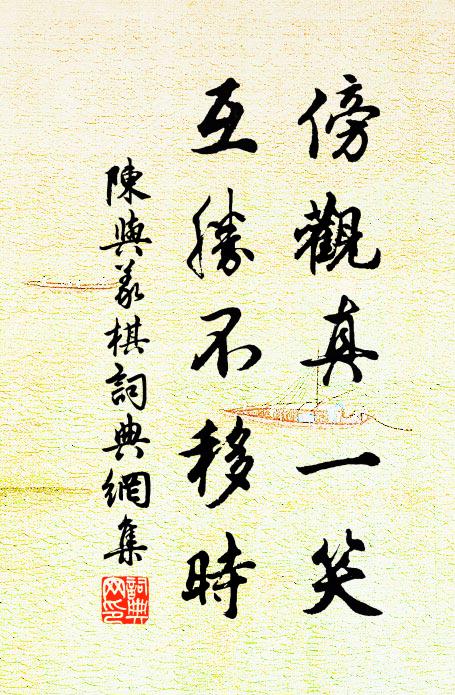 傍觀真一笑
互勝不移時
陳與義棋詞典網集
詞典網印